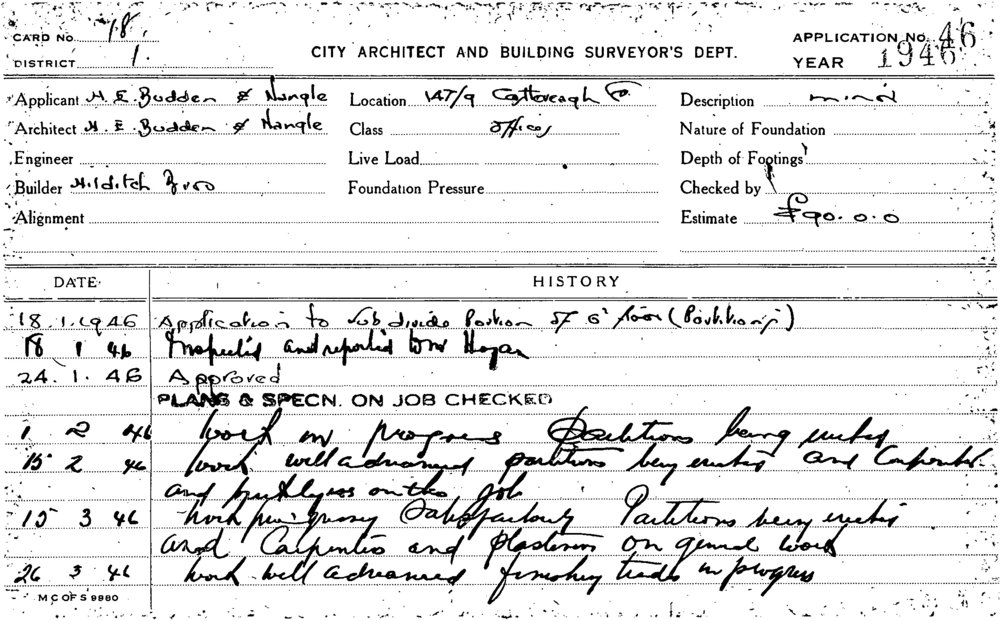 CARD No. 18. CITY ARCHITECT AND BUILDING SURVEYOR'S DEPT. APPLICATION No. 46
DISTRICT 1. YEAR 1946
Applicant H. E. Budden & Nangle Location 147/9 Castlereagh St. Description minor
Architect H. E. Budden & Nangle Class offices Nature of Foundation
Engineer Live Load Depth of Footings
Builder Hilditch Bros Foundation Pressure Checked by
Alignment Estimate £90.0.0
DATE HISTORY
18.1.1946 Application to sub divide Portion of 6th floor (Partitions)
18 1 46 Inspected and reported to Mr Hogan
24.1.46 Approved
PLANS & SPECN. ON JOB CHECKED
1 2 46 Work in progress Partitions being erected
15 2 46 Work well advanced partitions being erected and Carpenters
and on the job
15 3 46 Work progressing Satisfactorily Partitions being erected
and Carpenters and plasterers on general work
26 3 46 Work well advanced finishing trades in progress
M C OF S 9980